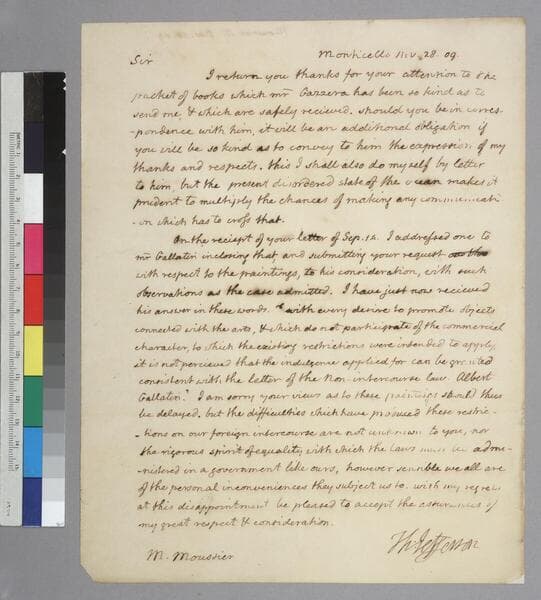 Sir
Monticello Nov. 28. 09.
I return you thanks for your attention to the
packet of books which mr Gazzera has been so kind as to
send me, & which are safely recieved. should you be in corres-
pondence with him, it will be an additional obligation if
you will be so kind as to convey to him the expression of my
thanks and respects. this I shall also do myself by letter
to him, but the present disordered state of the ocean makes it
prudent to multiply the chances of making any communicati
-on which has to cross that.
On the reciept of your letter of Sep. 14. I addressed one to
mr Gallatin inclosing that, and submitting your request
with respect to the paintings, to his consideration, with such
observations as the case admitted. I have just now recieved
his answer in these words. "with every desire to promote objects
connected with the arts, & which do not participate of the commercial
character, to which the existing restrictions were intended to apply,
it is not percieved that the indulgence applied for can be granted
consistent with the letter of the Non-intercourse law. Albert
Gallatin." I am sorry your views as to these paintings should thus
be delayed. but the difficulties which have produced these restric-
-tions on our foreign intercourse are not unknown to you, nor
the rigorous spirit of equality with which the laws must be admi-
-nistered in a government like ours, however sensible we all are
of the personal inconveniences they subject us to. with my regrets
at this disappointment be pleased to accept the assurances of
my great respect & consideration.
Th: Jefferson
M. Moussier